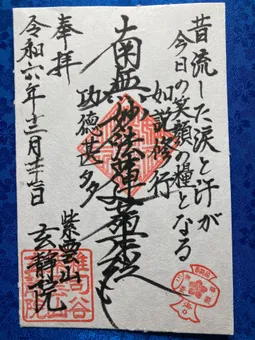 昔流した涙と汗が
今日の笑顔の糧となる
如説修行
南無妙法蓮華経
功徳甚多
奉拝
令和六年十二月廿七日
紫雲山
玄静院
雑司谷